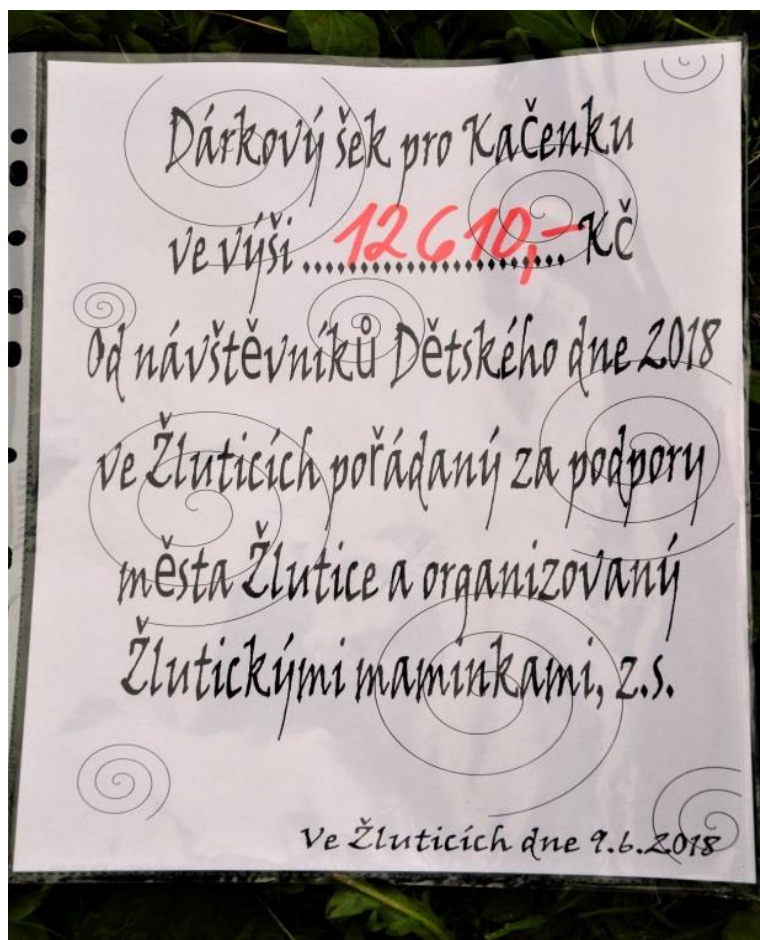 Dárkový šek pro Kačenku
ve výši ...12610,-... Kč
Od návštěvníků Dětského dne 2018
ve Žluticích pořádaný za podpory
města Žlutice a organizovaný
Žlutickými maminkami, z.s.
Ve Žluticích dne 9.6.2018